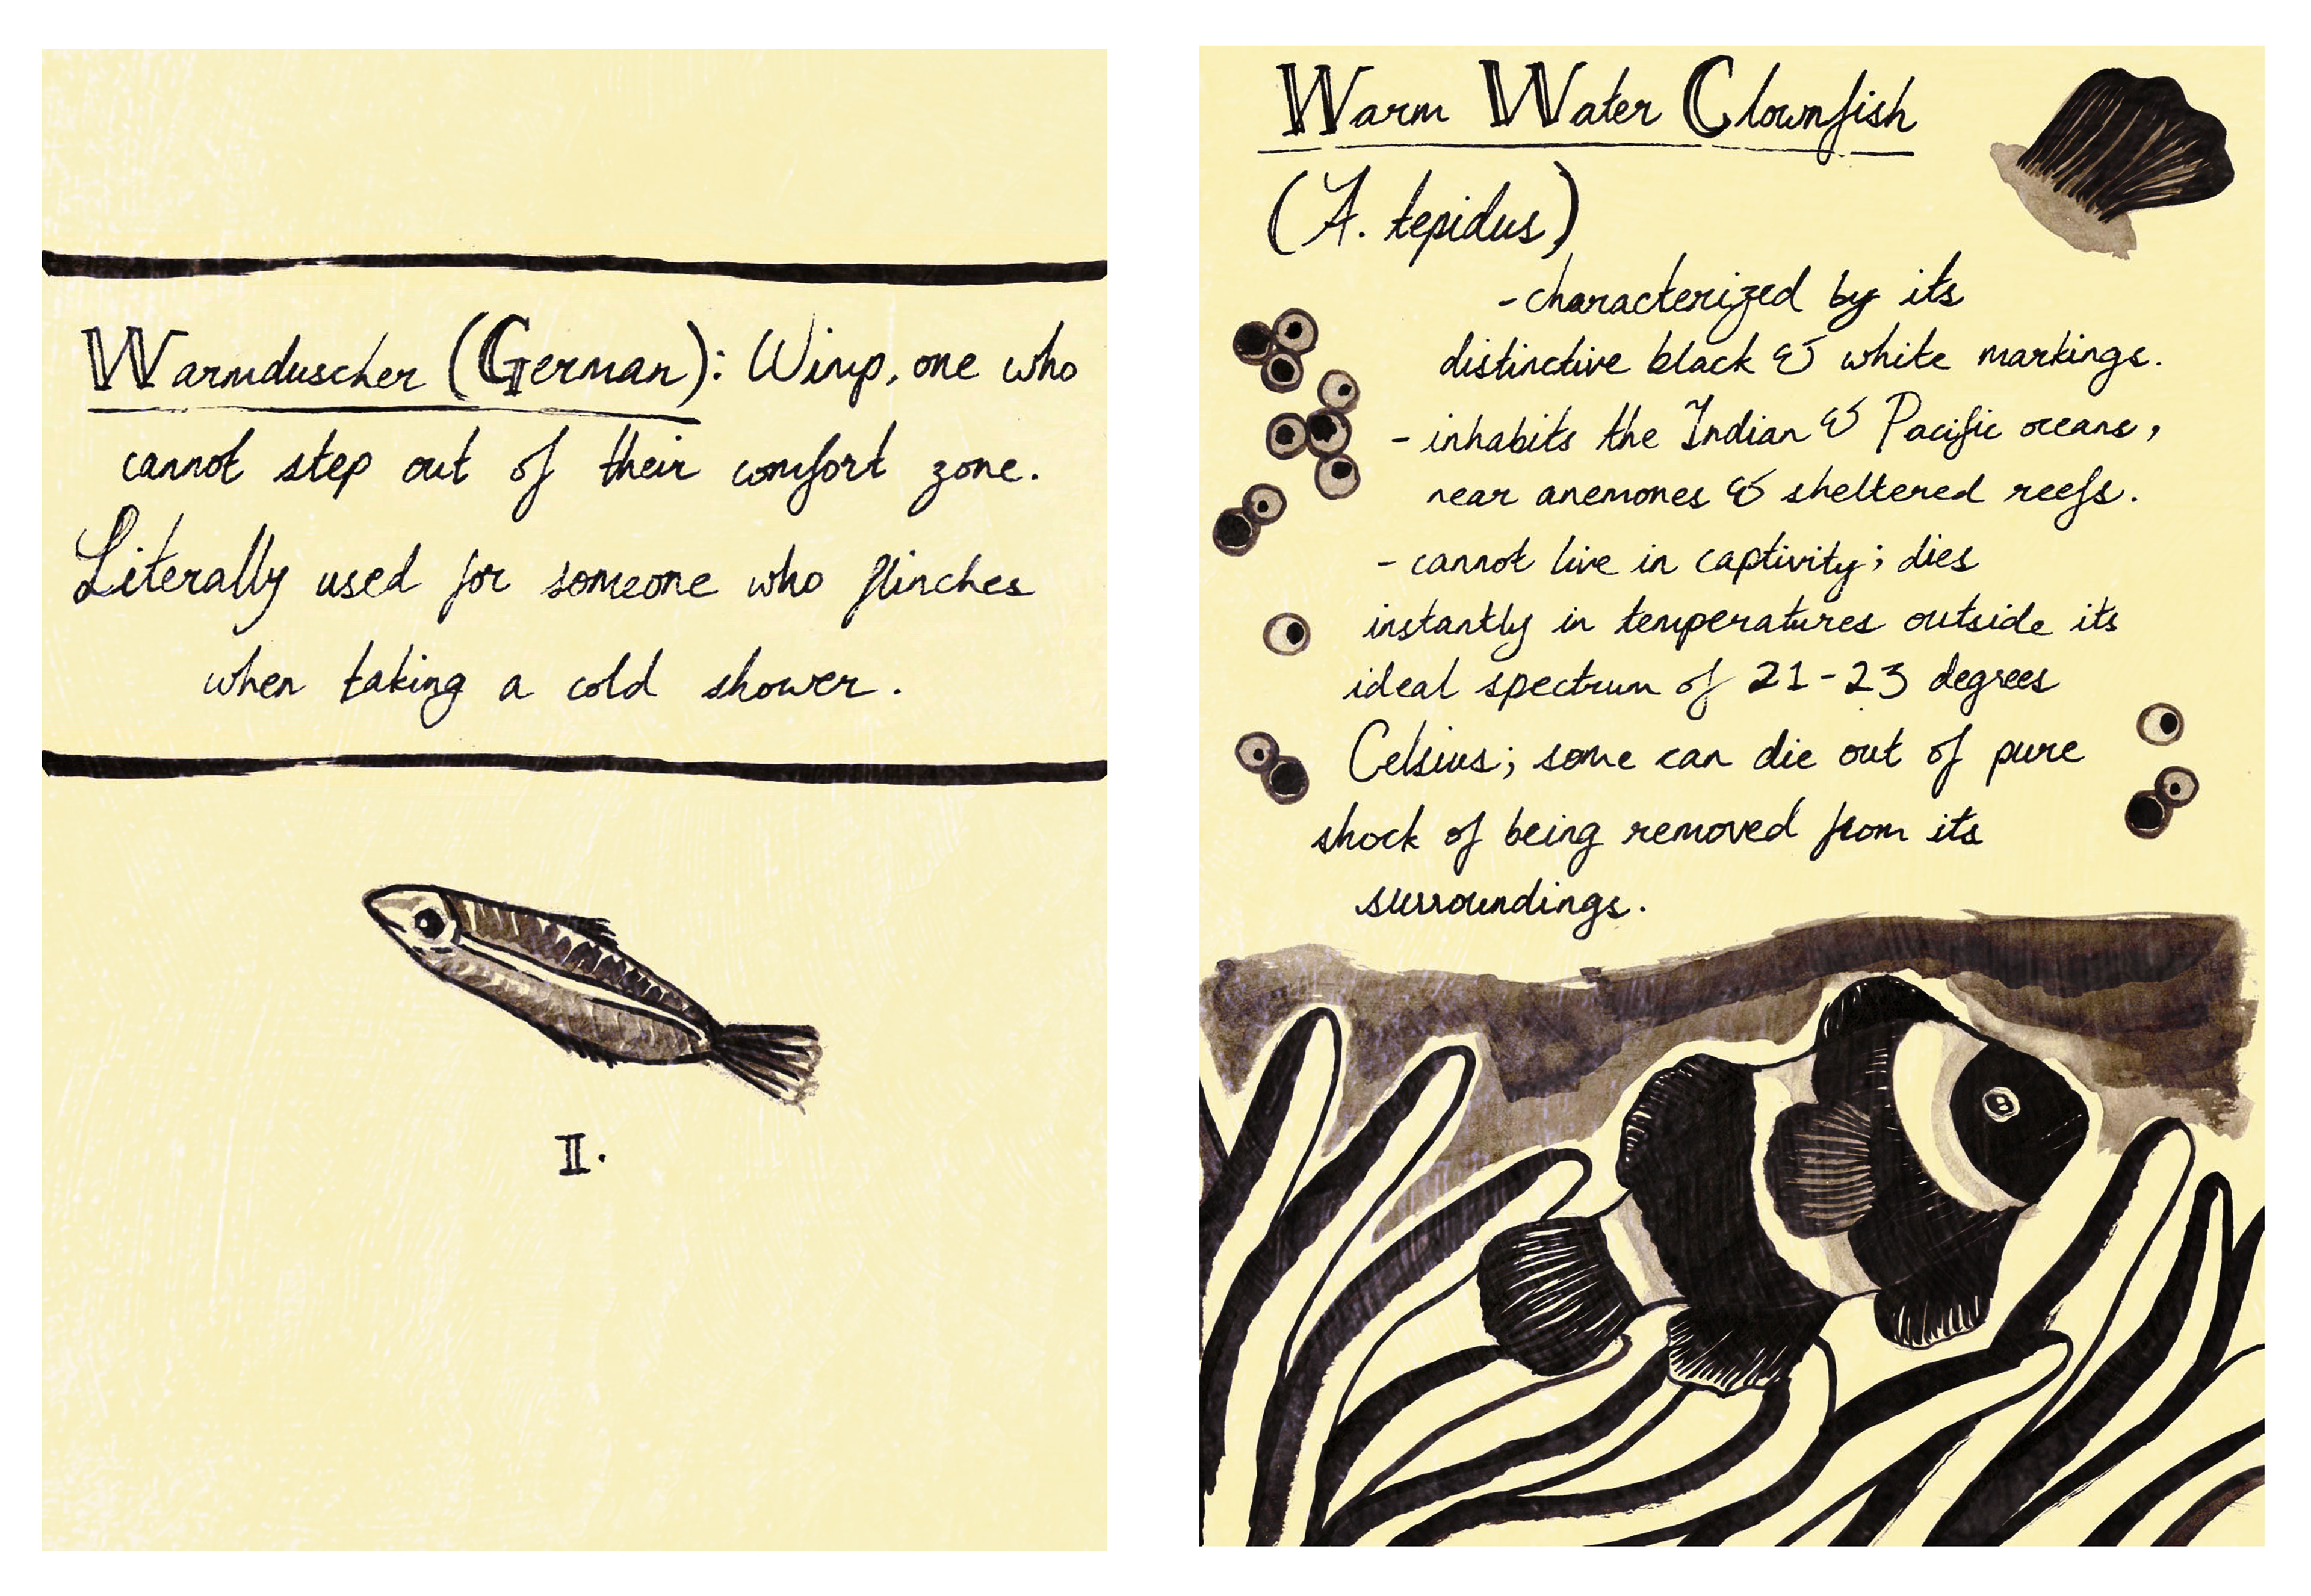 Warmduscher (German): Wimp, one who
cannot step out of their comfort zone.
Literally used for someone who flinches
when taking a cold shower.
II.
Warm Water Clownfish
(A. tepidus)
-characterized by its
distinctive black & white markings.
- inhabits the Indian & Pacific oceans,
near anemones & sheltered reefs.
- cannot live in captivity; dies
instantly in temperatures outside its
ideal spectrum of 21-23 degrees
Celsius; some can die out of pure
shock of being removed from its
surroundings.